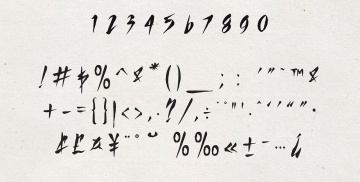 1 2 3 4 5 6 7 8 9 0
! # $ % ^ & * ( ) __ ; : ' " ~ ™ &
+ - = { } | < > , . ? / , ÷ ¨ " ' . ˆ ‘ ’ “ ” •
£ ¤ ¥ ¨ ° ˘ % ‰ « ± - … ¿